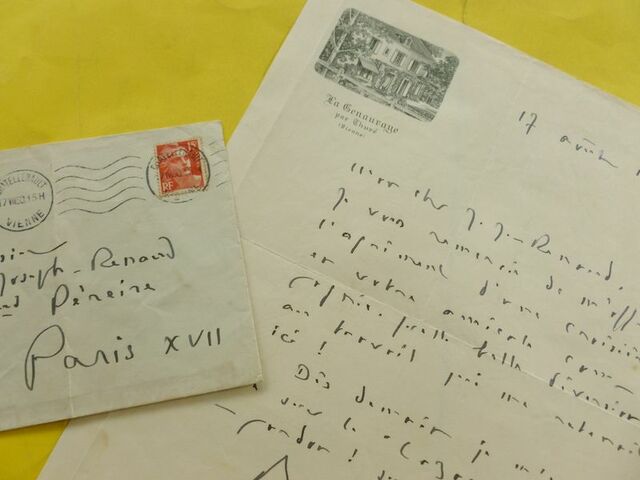 CHATELLERAULT
17 VIII 50 15 H
VIENNE
RF
Joseph-Renaud
Péreire
Paris XVII
La Genauraye
par Thuré
(Vienne)
17 août
Mon cher J. J-Renaud,
Je vous remercie de m'off
l'agrément d'une croisiè
et votre amicale com-
pagnie. Quelle belle diversion
au travail qui me
ici !
Dès demain je
sur le